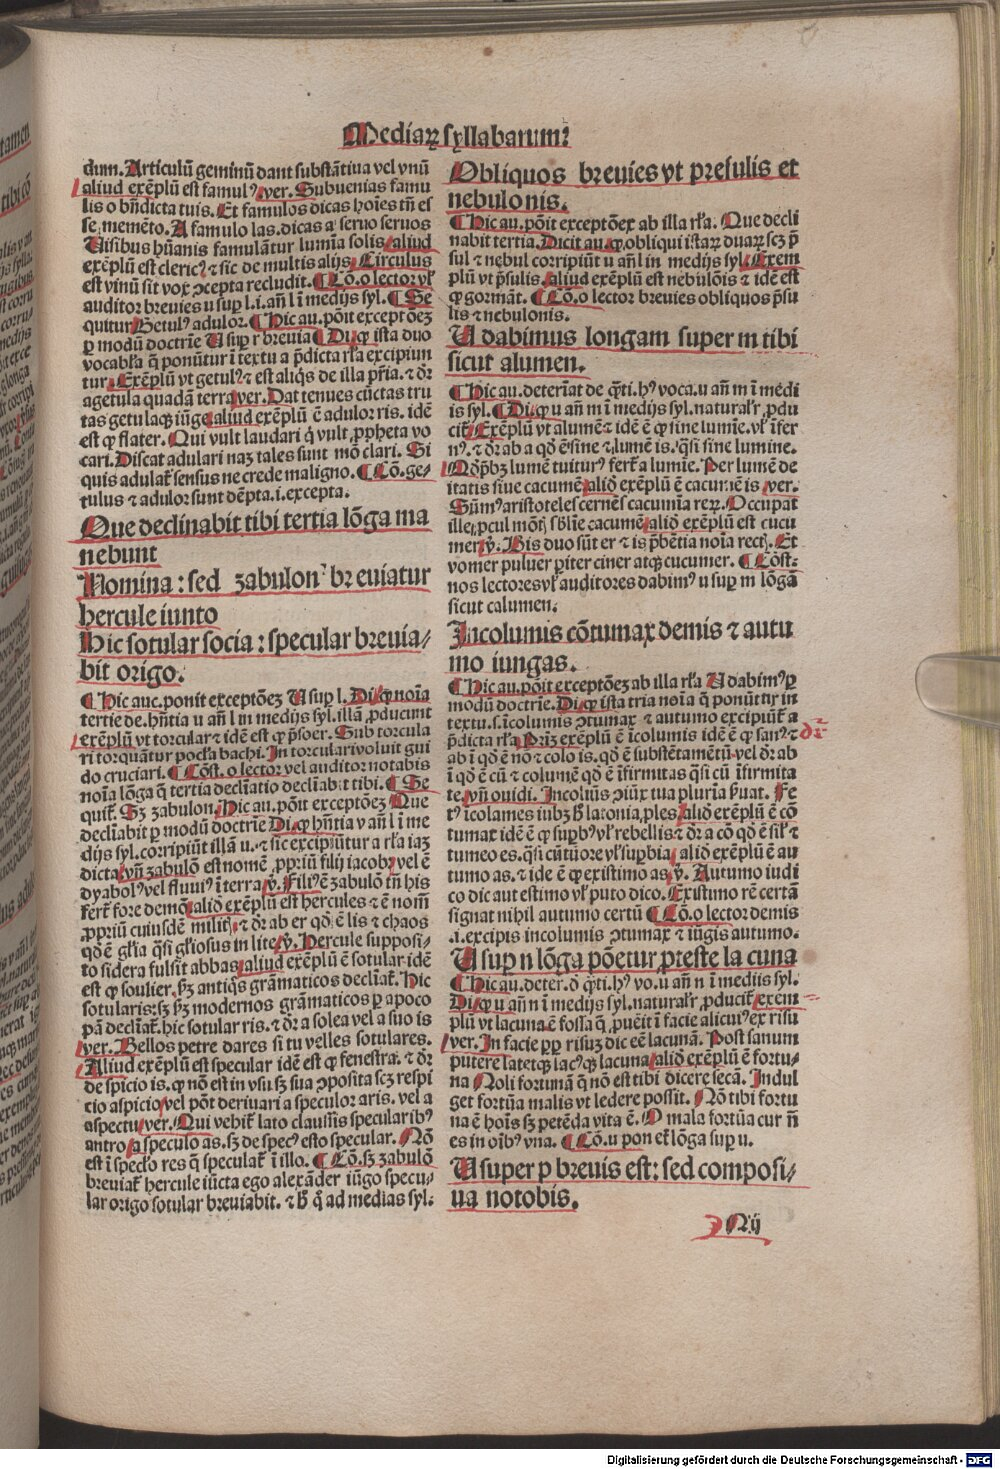 Mediaꝝ syllabarum
dum. Articulū geminū dant substātiua vel vnū
aliud exēplū est famulꝰ, ver. Subuenias famu
lis o bn̄dicta tuis. Et famulos dicas hoīes tn̄ es
se, memēto. A famulo las. dicas a seruo seruos
Uisibus hūanis famulātur lumīa solis, aliud
exēplū est clericꝰ ⁊ sic de multis alijs, Circulus
est vinū sit vox ↄcepta recludit. ¶ Cō. o lector vl̓
auditor breuies u suꝑ l. i. an̄ l ī medijs syl. ¶ Se
quitur Getulꝰ adulor. ¶ Hic au. pōit exceptōeꝫ
ꝑ modū doctrīe U suꝑ r breuia ¶ Di. ꝙ ista duo
vocabl̓a q̄ ponūtur ī textu a p̄dicta rl̓a excipiun
tur, Exēplū vt getulꝰ ⁊ est aliq̇s de illa pr̄ia. ⁊ dr̄
agetula quadā terra, ver. Dat tenues cūctas tru
tas getulaqꝫ iūge, aliud exēplū ē adulor ris. idē
est ꝙ flater. Qui vult laudari q̇ vult, ꝓpheta vo
cari. Discat adulari naꝫ tales sunt mō clari. Si
quis adulat̄ sensus ne crede maligno. ¶ Cō. ge-
tulus ⁊ adulor sunt dēpta. i. excepta.
Que declinabit tibi tertia lōga ma
nebunt
Nomina: sed zabulonꝰ br euiatur
hercule iunto
Hic sotular socia: specular breuia-
bit origo.
¶ Hic auc. ponit exceptōeꝫ U suꝑ l. Di. ꝙ noīa
tertie de. hn̄tia u an̄ l in medijs syl. illā, ꝓducunt
exēplū vt torcular ⁊ idē est ꝙ p̄soer. Sub torcula
ri torquātur pocl̓a bachi. In torculari voluit gui
do cruciari. ¶ Cōst. o lector vel auditor notabis
noīa lōga q̄ tertia declīatio declīabit tibi. ¶ Se
quit̄. Sꝫ zabulon. Hic au. pōit exceptōeꝫ Que
declīabit ꝑ modū doctrīe Di. ꝙ hn̄tia v an̄ l ī me
dijs syl. corripiūt illā u. ⁊ sic excipiūtur a rl̓a iaꝫ
dicta, vn̄ zabulō est nomē, ꝓpriū filij iacob, vel ē
dyabolꝰ vel fluuiꝰ ī terra, ꝟ. Filiꝰ ē zabulō tn̄ his
fert̄ fore demō, aliđ exēplū est hercules ⁊ ē nom̄
ꝓpriū cuiusdē militꝭ, ⁊ dr̄ ab er qđ ē lis ⁊ chaos
qđ ē gl̓ia q̄si gl̓iosus in lite, ꝟ. Hercule supposi-
to sidera fulsit abbas, aliud exēplū ē sotular idē
est ꝙ soulier. sꝫ antiq̇s grāmaticos declīat̄. Hic
sotularis: sꝫ sꝫ modernos grāmaticos ꝑ apoco
pā declīat̄. hic sotular ris. ⁊ dr̄ a solea vel a suo is
ver. Bellos petre dares si tu velles sotulares.
Aliud exēplū est specular idē est ꝙ fenestra. ⁊ dr̄
de spicio is. ꝙ nō est in vsu sꝫ sua ↄposita scꝫ respi
cio aspicio, vel pōt deriuari a speculor aris. vel a
aspectu, ver. Qui vehit̄ lato claussis specularibꝰ
antro, a speculo as. sꝫ de specꝰ esto specular. Nō
est ī specl̓o res q̄ speculat̄ ī illo. ¶ Cō. sꝫ zabulō
breuiat̄ hercule iūcta ego alexāder iūgo specu-
lar origo sotular breuiabit. ⁊ ꝧ q̇ ad medias syl.
Obliquos breuies vt presulis et
nebulonis.
¶ Hic au. pōit exceptōex ab illa rl̓a. Que decli
nabit tertia. Dicit au. ꝙ. obliqui istaꝝ duaꝝ scꝫ p̄
sul ⁊ nebul corripiūt u an̄ l in medijs syl. Exem
plū vt p̄sulis. aliud exēplū est nebulōis ⁊ idē est
ꝙ gormāt. ¶ Cō. o lector breuies obliquos p̄su
lis ⁊ nebulonis.
U dabimus longam super m tibi
sicut alumen.
¶ Hic au. deterīat de q̄ti. hꝰ voca. u an̄ m ī medi
is syl. ¶ Di. ꝙ u an̄ m ī medijs syl. naturalr̄, ꝓdu
cit̄, Exēplū vt alumē ⁊ idē ē ꝙ sine lumīe. vl̓ īfer
nꝰ. ⁊ dr̄ ab a qđ ē sine ⁊ lumē is. q̄si sine lumine.
Nō p̄bꝫ lumē tuiturꝰ fert̄ a lumīe. Per lumē de
itatis siue cacumē, aliđ exēplū ē cacumē is, ver.
Sūmꝰ aristoteles cernēs cacumīa reꝝ. Occupat
ille, ꝓcul mōtꝭ sblīe cacumē, aliđ exēplū est cucu
mer, ꝟ. Bis duo sūt er ⁊ is p̄bētia noīa rectꝭ. Et
vomer puluer ꝑiter ciner atqꝫ cucumer. ¶ Cōst.
nos lectores vl̓ auditores dabimꝰ u suꝑ m lōgā
sicut calumen.
Incolumis cōtumax demis ⁊ autu
mo iungas.
¶ Hic au. pōit exceptōeꝫ ab illa rl̓a U dabimꝰ ꝑ
modū doctrīe. Di. ꝙ ista tria noīa q̄ ponūtur in
textu. s. īcolumis ↄtumax ⁊ autumo excipiūt̄ a
p̄dicta rl̓a, Prīꝫ exēplū ē īcolumis idē ē ꝙ sanꝰ ⁊
ab ī qđ ē nō ⁊ colo is. qđ ē substētamētū vel dr̄ ab
ī qđ ē cū ⁊ columē qđ ē īfirmitas q̄si cū īfirmita
te, vn̄ ouidi. Incoliūs ↄiūx tua pluria p̄uat. Fe
tꝰ īcolames iubꝫ ꝧ latonia, ples, aliđ exēplū ē cō
tumax idē ē ꝙ suꝑbꝰ vl̓ rebellis ⁊ dr̄ a cō qđ ē sil̓ ⁊
tumeo es. q̄si cū tūore vl̓ suꝑbia, aliđ exēplū ē au
tumo as. ⁊ ide ē ꝙ existimo as, ꝟ. Autumo iudi
co dic aut estimo vl̓ puto dico. Existumo rē certā
signat nihil autumo certū ¶ Cō. o lector demis
.i. excipis incolumis ↄtumax ⁊ iūgis autumo.
U suꝑ n lōga pōetur p̄reste la cuna
¶ Hic au. deter. đ q̄ti. hꝰ vo. u an̄ n ī medijs syl.
Di. ꝙ u an̄ n ī medijs syl. naturalr̄, ꝓducit̄, exem
plū vt lacuna ē fossa q̄, puēit ī facie alicuiꝰ ex risu
ver. In facie ꝓꝑ risuꝫ dic eē lacunā. Post sanum
putere latetqꝫ lacꝰqꝫ lacuna, aliđ exēplū ē fortu-
na Noli fortunā q̄ nō est tibi dicere secā. Indul
get fortūa malis vt ledere possit. Nō tibi fortu
na ē hoīs sꝫ petēda vita ē. O mala fortūa cur n̄
es in oībꝰ vna. ¶ Cō. u pon et̄ lōga suꝑ u.
U super p breuis est: sed composi-
ua notobis.
N ij
Digitalisierung gefördert durch die Deutsche Forschungsgemeinschaft - DFG